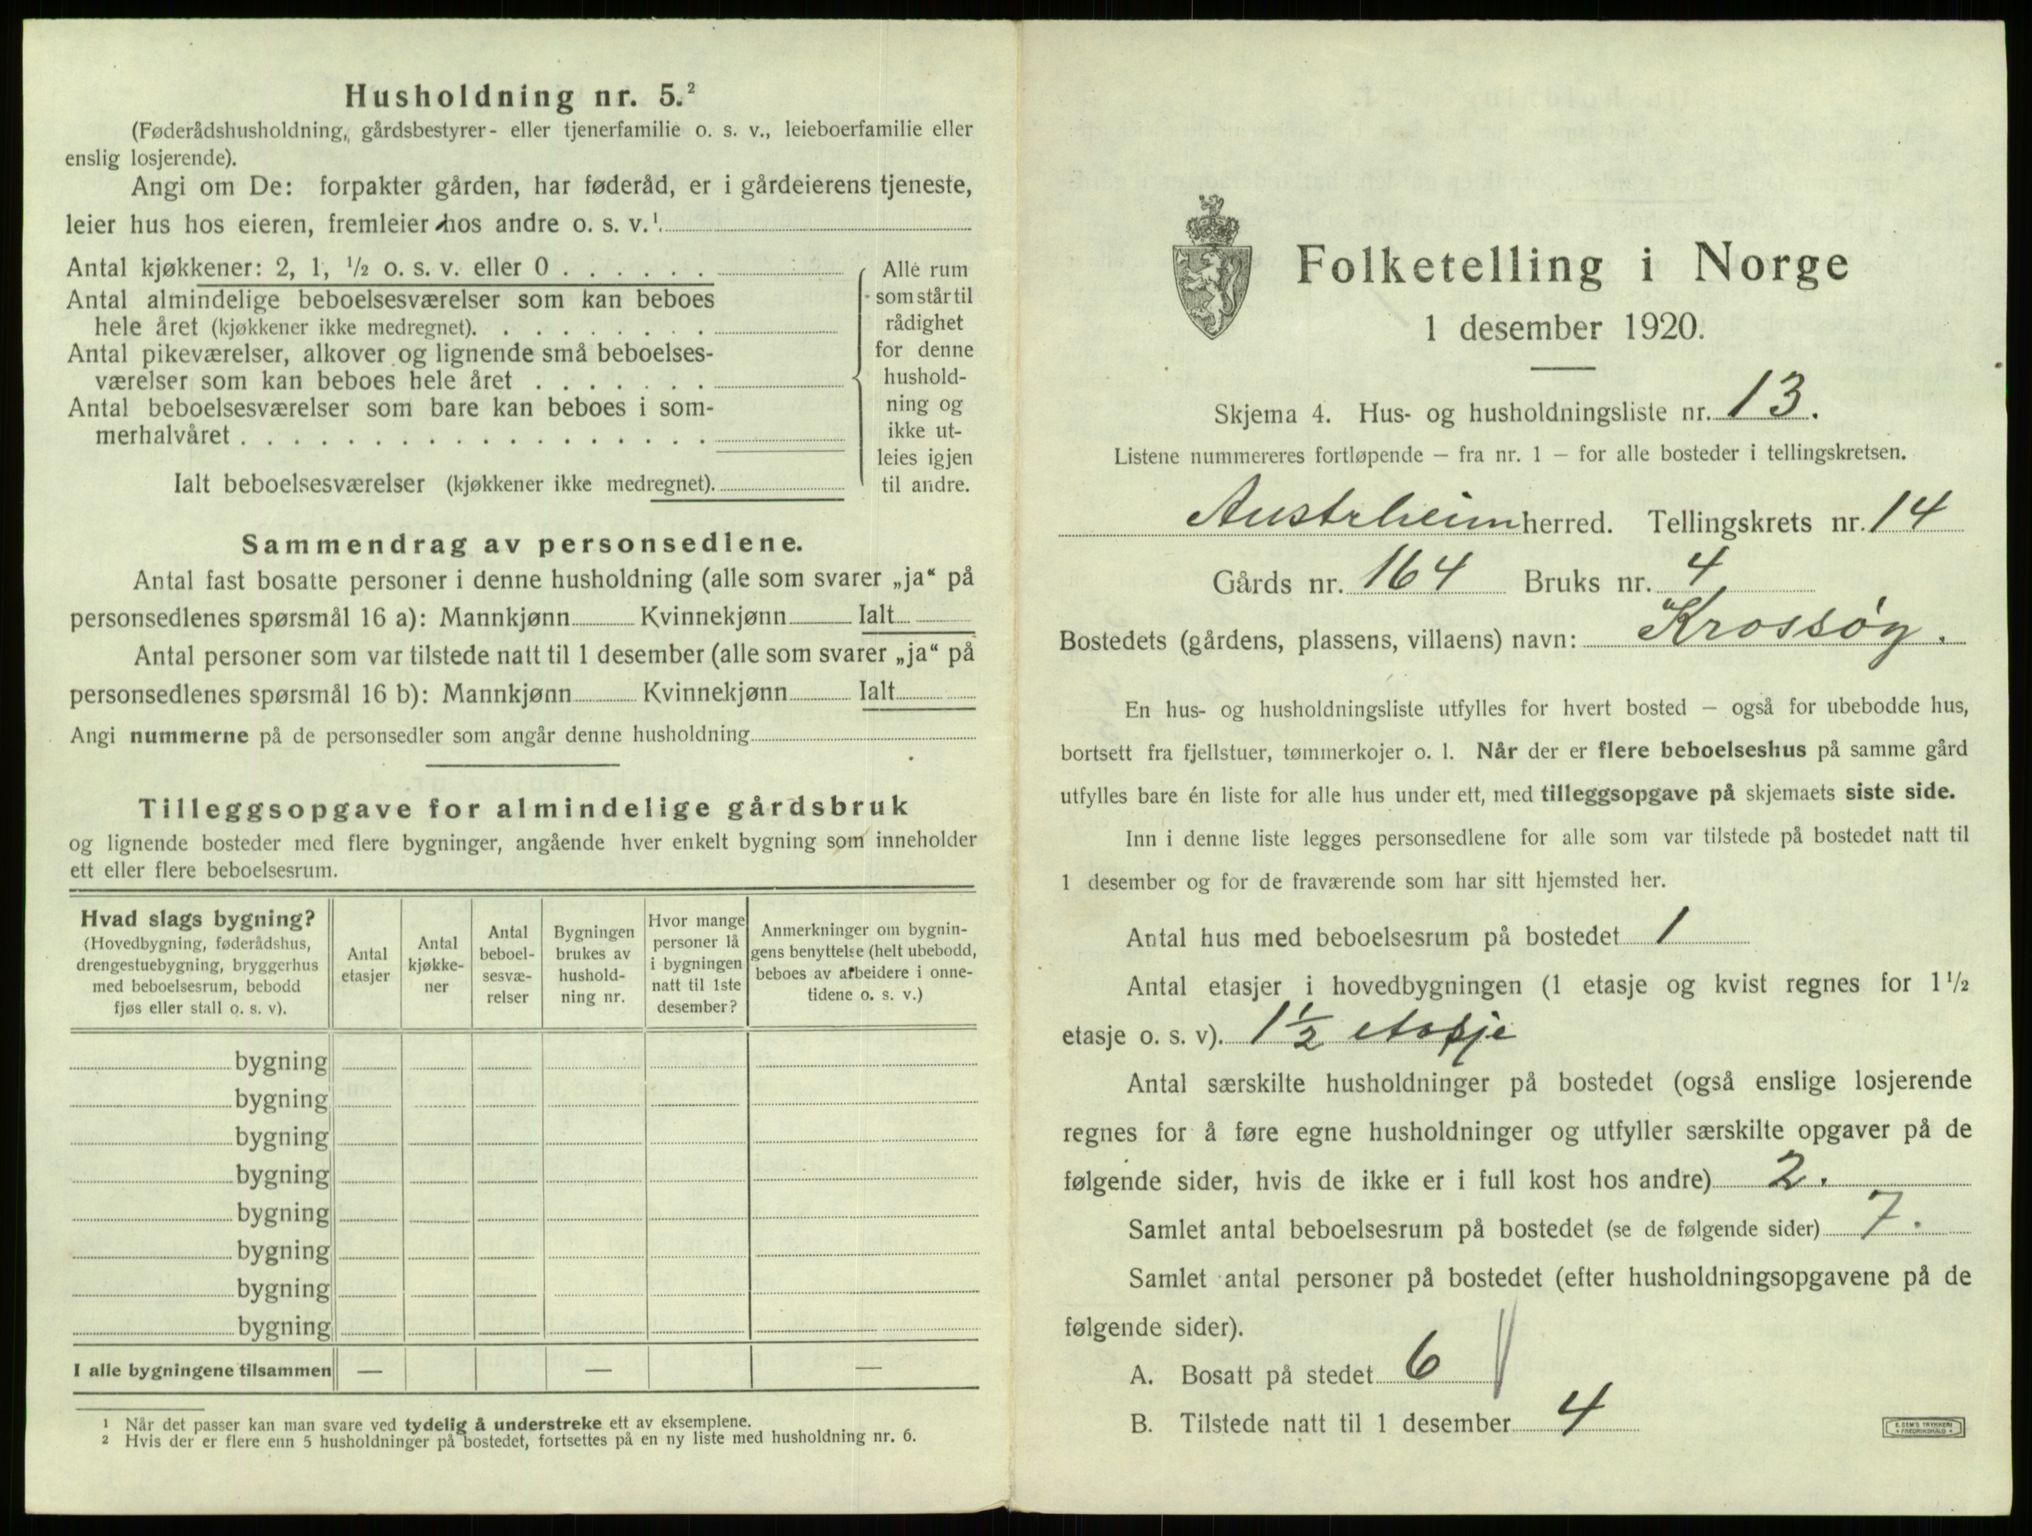 Husholdning nr. 5.²
(Føderådshusholdning, gårdsbestyrer- eller tjenerfamilie o. s. v., leieboerfamilie eller
enslig losjerende).
Angi om De: forpakter gården, har føderåd, er i gårdeierens tjeneste,
leier hus hos eieren, fremleier hos andre o. s. v.¹
Antal kjøkkener: 2, 1, ½ o. s. v. eller 0 . . . . . .
Antal almindelige beboelsesværelser som kan beboes
hele året (kjøkkener ikke medregnet). . . . . . . . .
Antal pikeværelser, alkover og lignende små beboelses-
værelser som kan beboes hele året . . . . . . .
Antal beboelsesværelser som bare kan beboes i som-
merhalvåret . . . . . . . . . . . . . . . . . .
Ialt beboelsesværelser (kjøkkener ikke medregnet).
Alle rum
som står til
rådighet
for denne
hushold-
ning og
ikke ut-
leies igjen
til andre.
Sammendrag av personsedlene.
Antal fast bosatte personer i denne husholdning (alle som svarer „ja“ på
personsedlenes spørsmål 16 a): Mannkjønn Kvinnekjønn Ialt
Antal personer som var tilstede natt til 1 desember (alle som svarer „ja“ på
personsedlenes spørsmål 16 b): Mannkjønn Kvinnekjønn Ialt
Angi nummerne på de personsedler som angår denne husholdning
Tilleggsopgave for almindelige gårdsbruk
og lignende bosteder med flere bygninger, angående hver enkelt bygning som inneholder
ett eller flere beboelsesrum.
Hvad slags bygning?
(Hovedbygning, føderådshus,
drengestuebygning, bryggerhus
med beboelsesrum, bebodd
fjøs eller stall o. s. v).
Antal
etasjer
Antal
kjøkke-
ner
Antal
beboel-
sesvæ-
relser
Bygningen
brukes av
hushold-
ning nr.
Hvor mange
personer lå
i bygningen
natt til 1ste
desember?
Anmerkninger om bygnin-
gens benyttelse (helt ubebodd,
beboes av arbeidere i onne-
tidene o. s. v.)
bygning
bygning
bygning
bygning
bygning
bygning
bygning
bygning
I alle bygningene tilsammen — — —
¹ Når det passer kan man svare ved tydelig å understreke ett av eksemplene.
² Hvis der er flere enn 5 husholdninger på bostedet, fortsettes på en ny liste med husholdning nr. 6.
Folketelling i Norge
1 desember 1920.
Skjema 4. Hus- og husholdningsliste nr. 13.
Listene nummereres fortløpende – fra nr. 1 – for alle bosteder i tellingskretsen.
Austrheim herred. Tellingskrets nr. 14
Gårds nr. 164 Bruks nr. 4
Bostedets (gårdens, plassens, villaens) navn: Krossøy.
En hus- og husholdningsliste utfylles for hvert bosted – også for ubebodde hus,
bortsett fra fjellstuer, tømmerkojer o. l. Når der er flere beboelseshus på samme gård
utfylles bare én liste for alle hus under ett, med tilleggsopgave på skjemaets siste side.
Inn i denne liste legges personsedlene for alle som var tilstede på bostedet natt til
1 desember og for de fraværende som har sitt hjemsted her.
Antal hus med beboelsesrum på bostedet 1
Antal etasjer i hovedbygningen (1 etasje og kvist regnes for 1 ½
etasje o. s. v). 1 ½ etasje
Antal særskilte husholdninger på bostedet (også enslige losjerende
regnes for å føre egne husholdninger og utfyller særskilte opgaver på de
følgende sider, hvis de ikke er i full kost hos andre) 2.
Samlet antal beboelsesrum på bostedet (se de følgende sider) 7.
Samlet antal personer på bostedet (efter husholdningsopgavene på de
følgende sider).
A. Bosatt på stedet 6
B. Tilstede natt til 1 desember 4
E. SEM'S TRYKKERI
FREDRIKSHALD